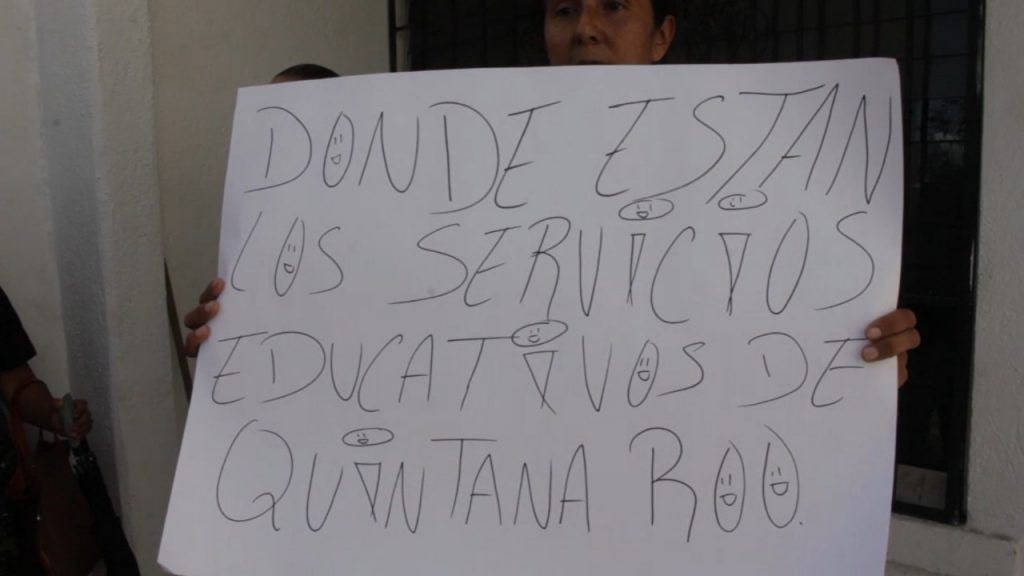 DONDE ESTAN
LOS SERVICIOS
EDUCATIVOS DE
QUINTANA ROO.